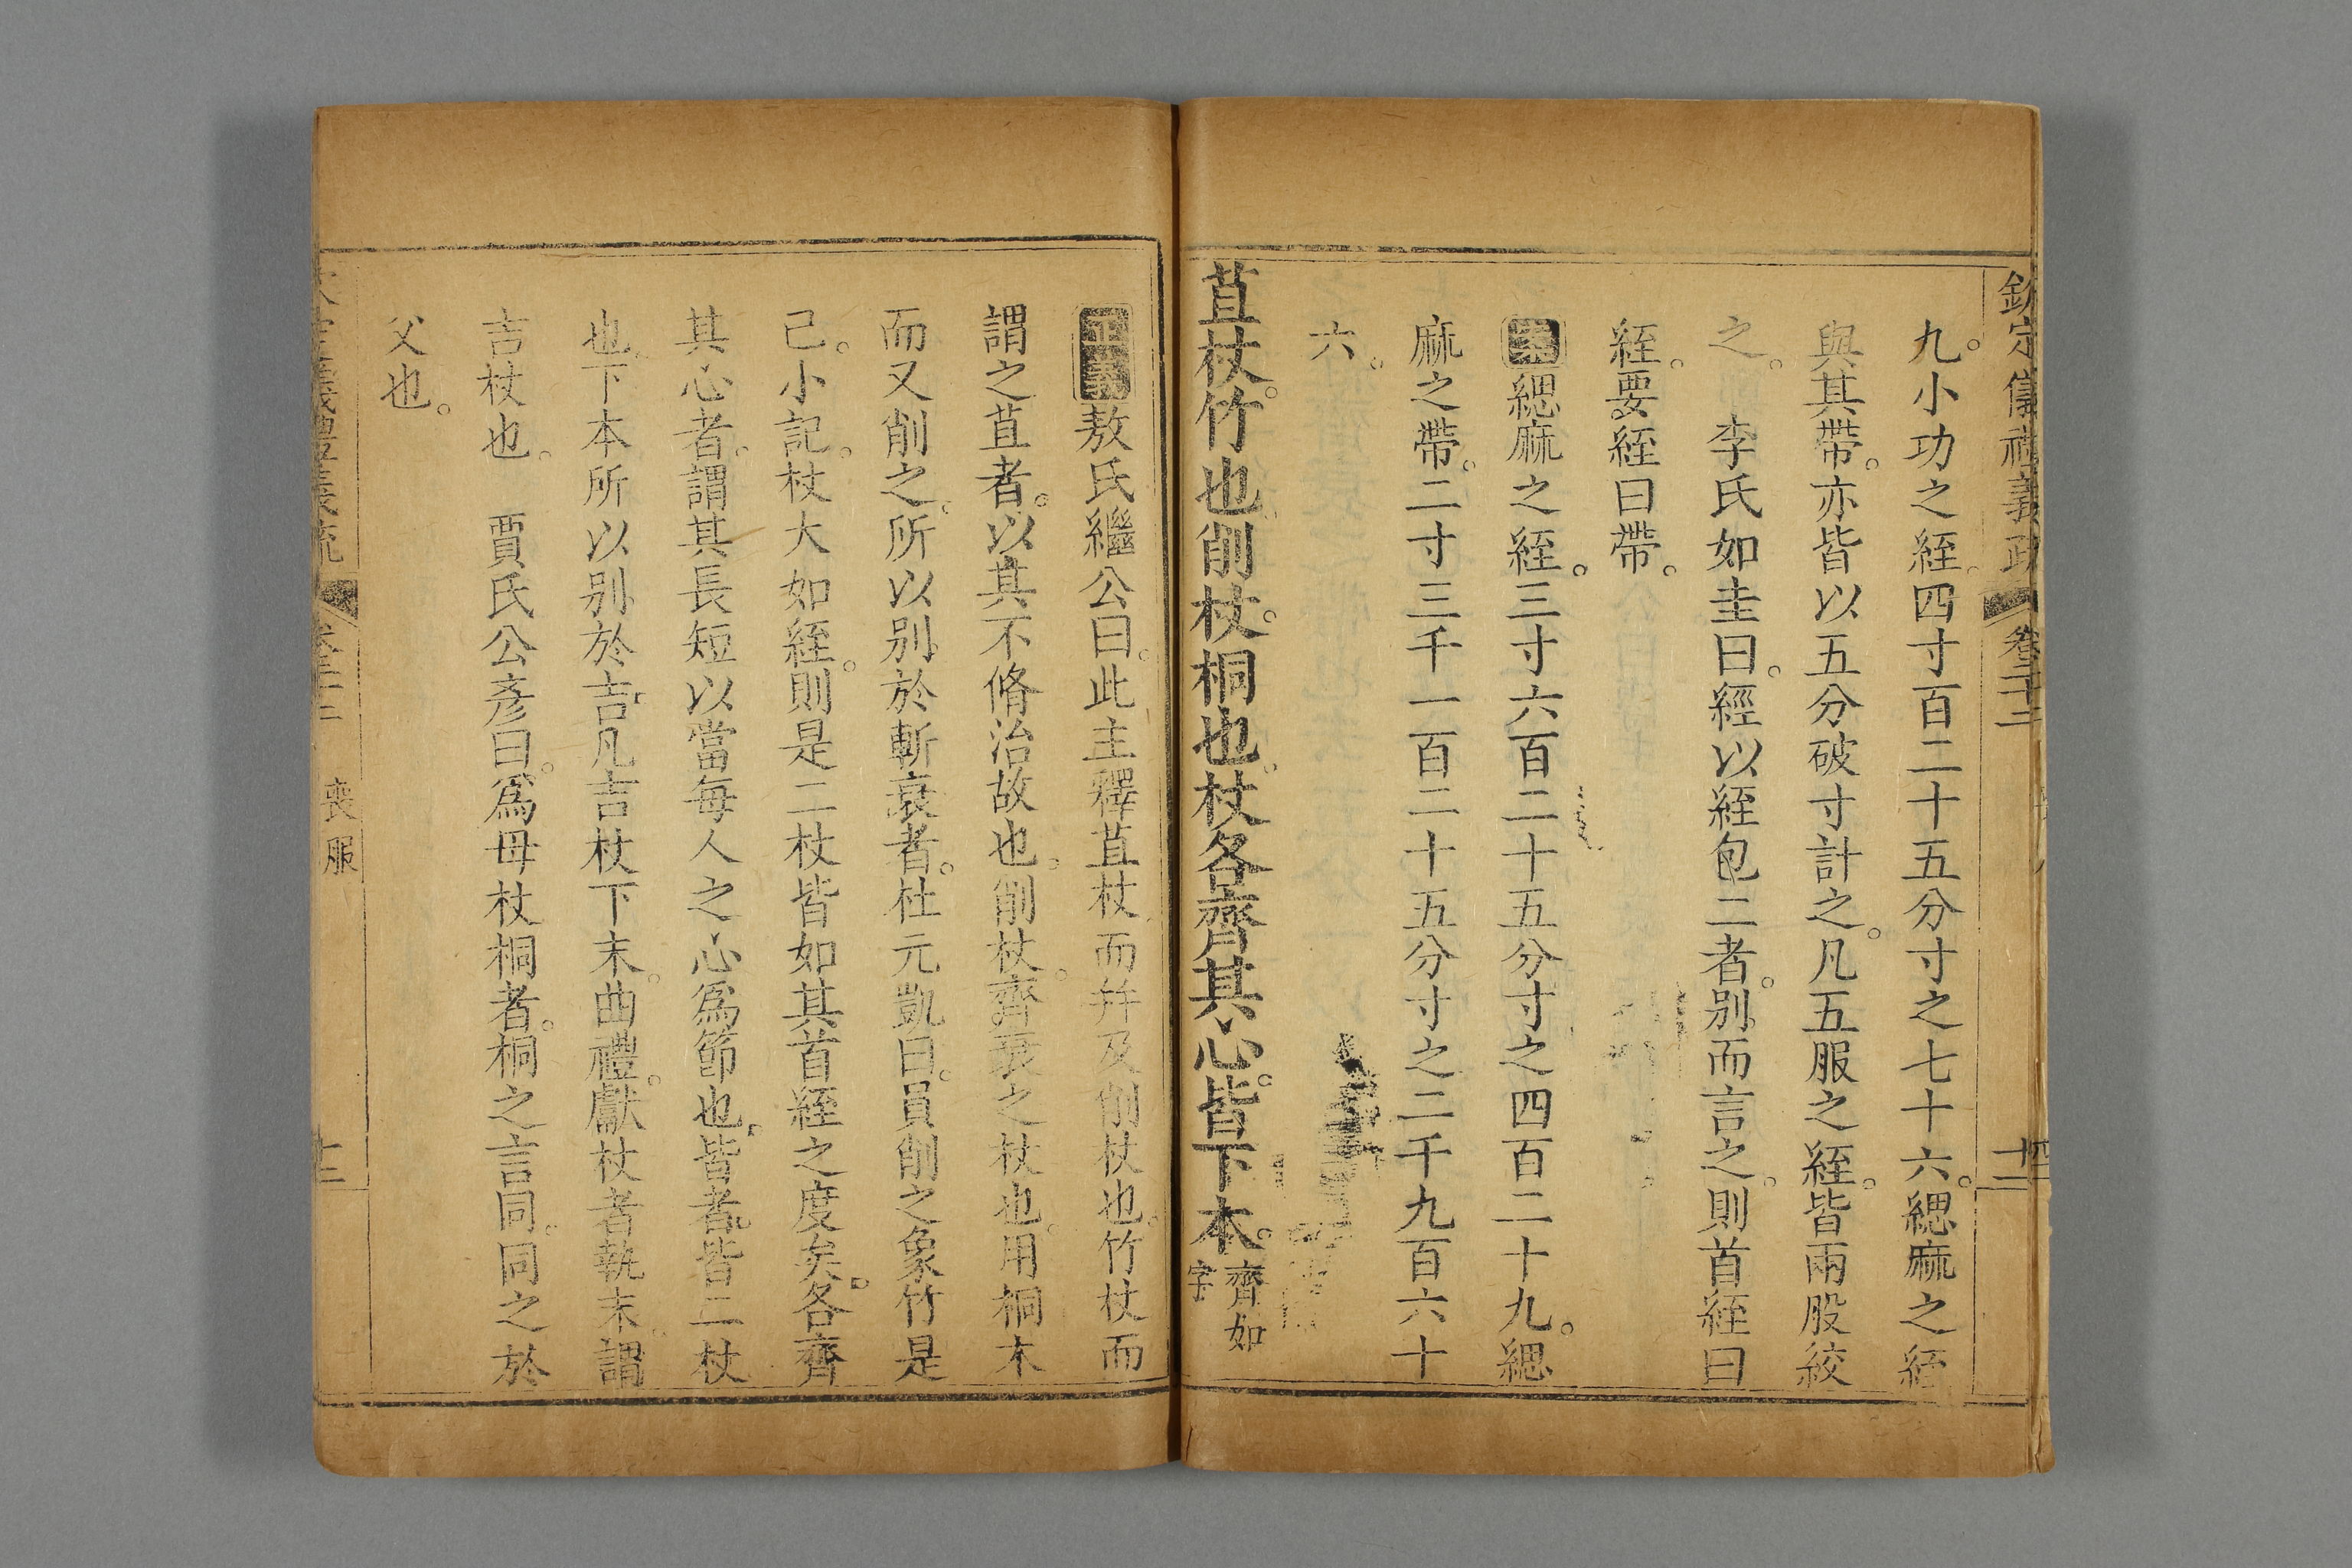 欽定儀禮義疏 卷二十二 十二
九。小功之絰。四寸百二十五分寸之七十六。緦麻之絰
與其帶。亦皆以五分破寸計之。凡五服之絰。皆兩股絞
之。 李氏如圭曰。經以絰包二者。別而言之。則首絰曰
絰。要絰曰帶。
案緦麻之絰。三寸六百二十五分寸之四百二十九。緦
麻之帶。二寸三千一百二十五分寸之二千九百六十
六。
苴杖。竹也。削杖。桐也。杖各齊其心。皆下本。齊如
字
正義敖氏繼公曰。此主釋苴杖而并及削杖也。竹杖而
謂之苴者。以其不脩治故也。削杖。齊衰之杖也。用桐木
而又削之。所以別於斬衰者。杜元凱曰。員削之象竹是
已。小記。杖大如絰。則是二杖皆如其首絰之度矣。各齊
其心者。謂其長短以當每人之心爲節也。皆者。皆二杖
也。下本所以別於吉。凡吉杖下末。曲禮。獻杖者執末。謂
吉杖也。 賈氏公彥曰。爲母杖桐者。桐之言同。同之於
父也。
喪服